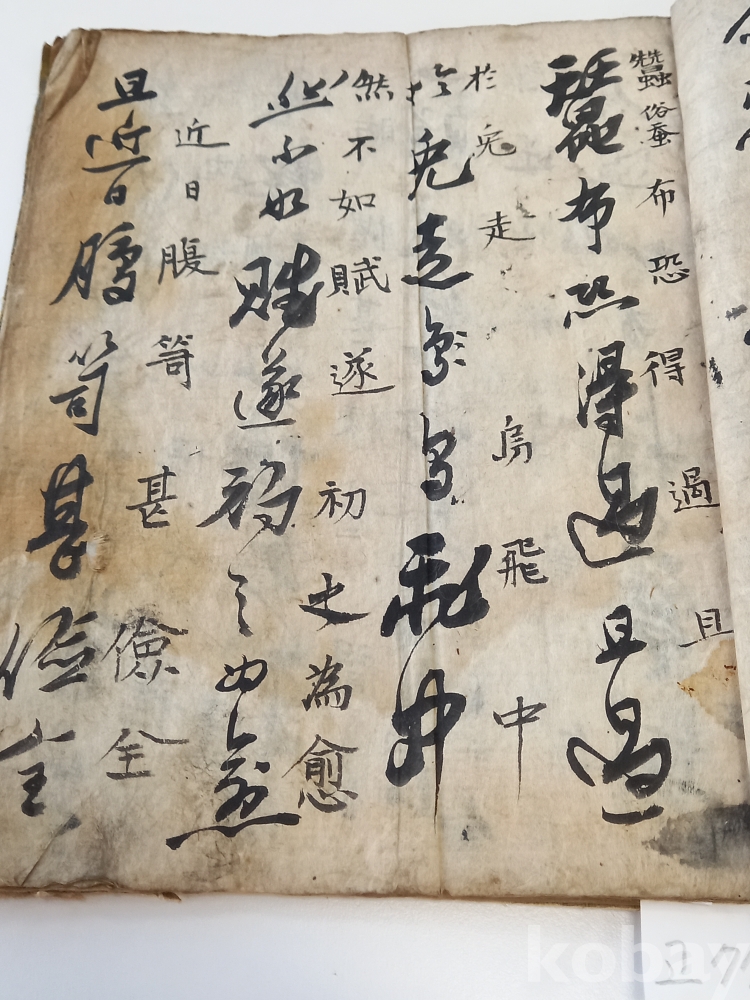 蠶俗蚕布恐得過且
蠶布恐得過且過
於兎走烏飛中
於兎走烏飛中
然不如賦遂初之為愈
然不如賦遂初之為愈
近日腹笥甚儉全
且近日腹笥甚儉全
kobay